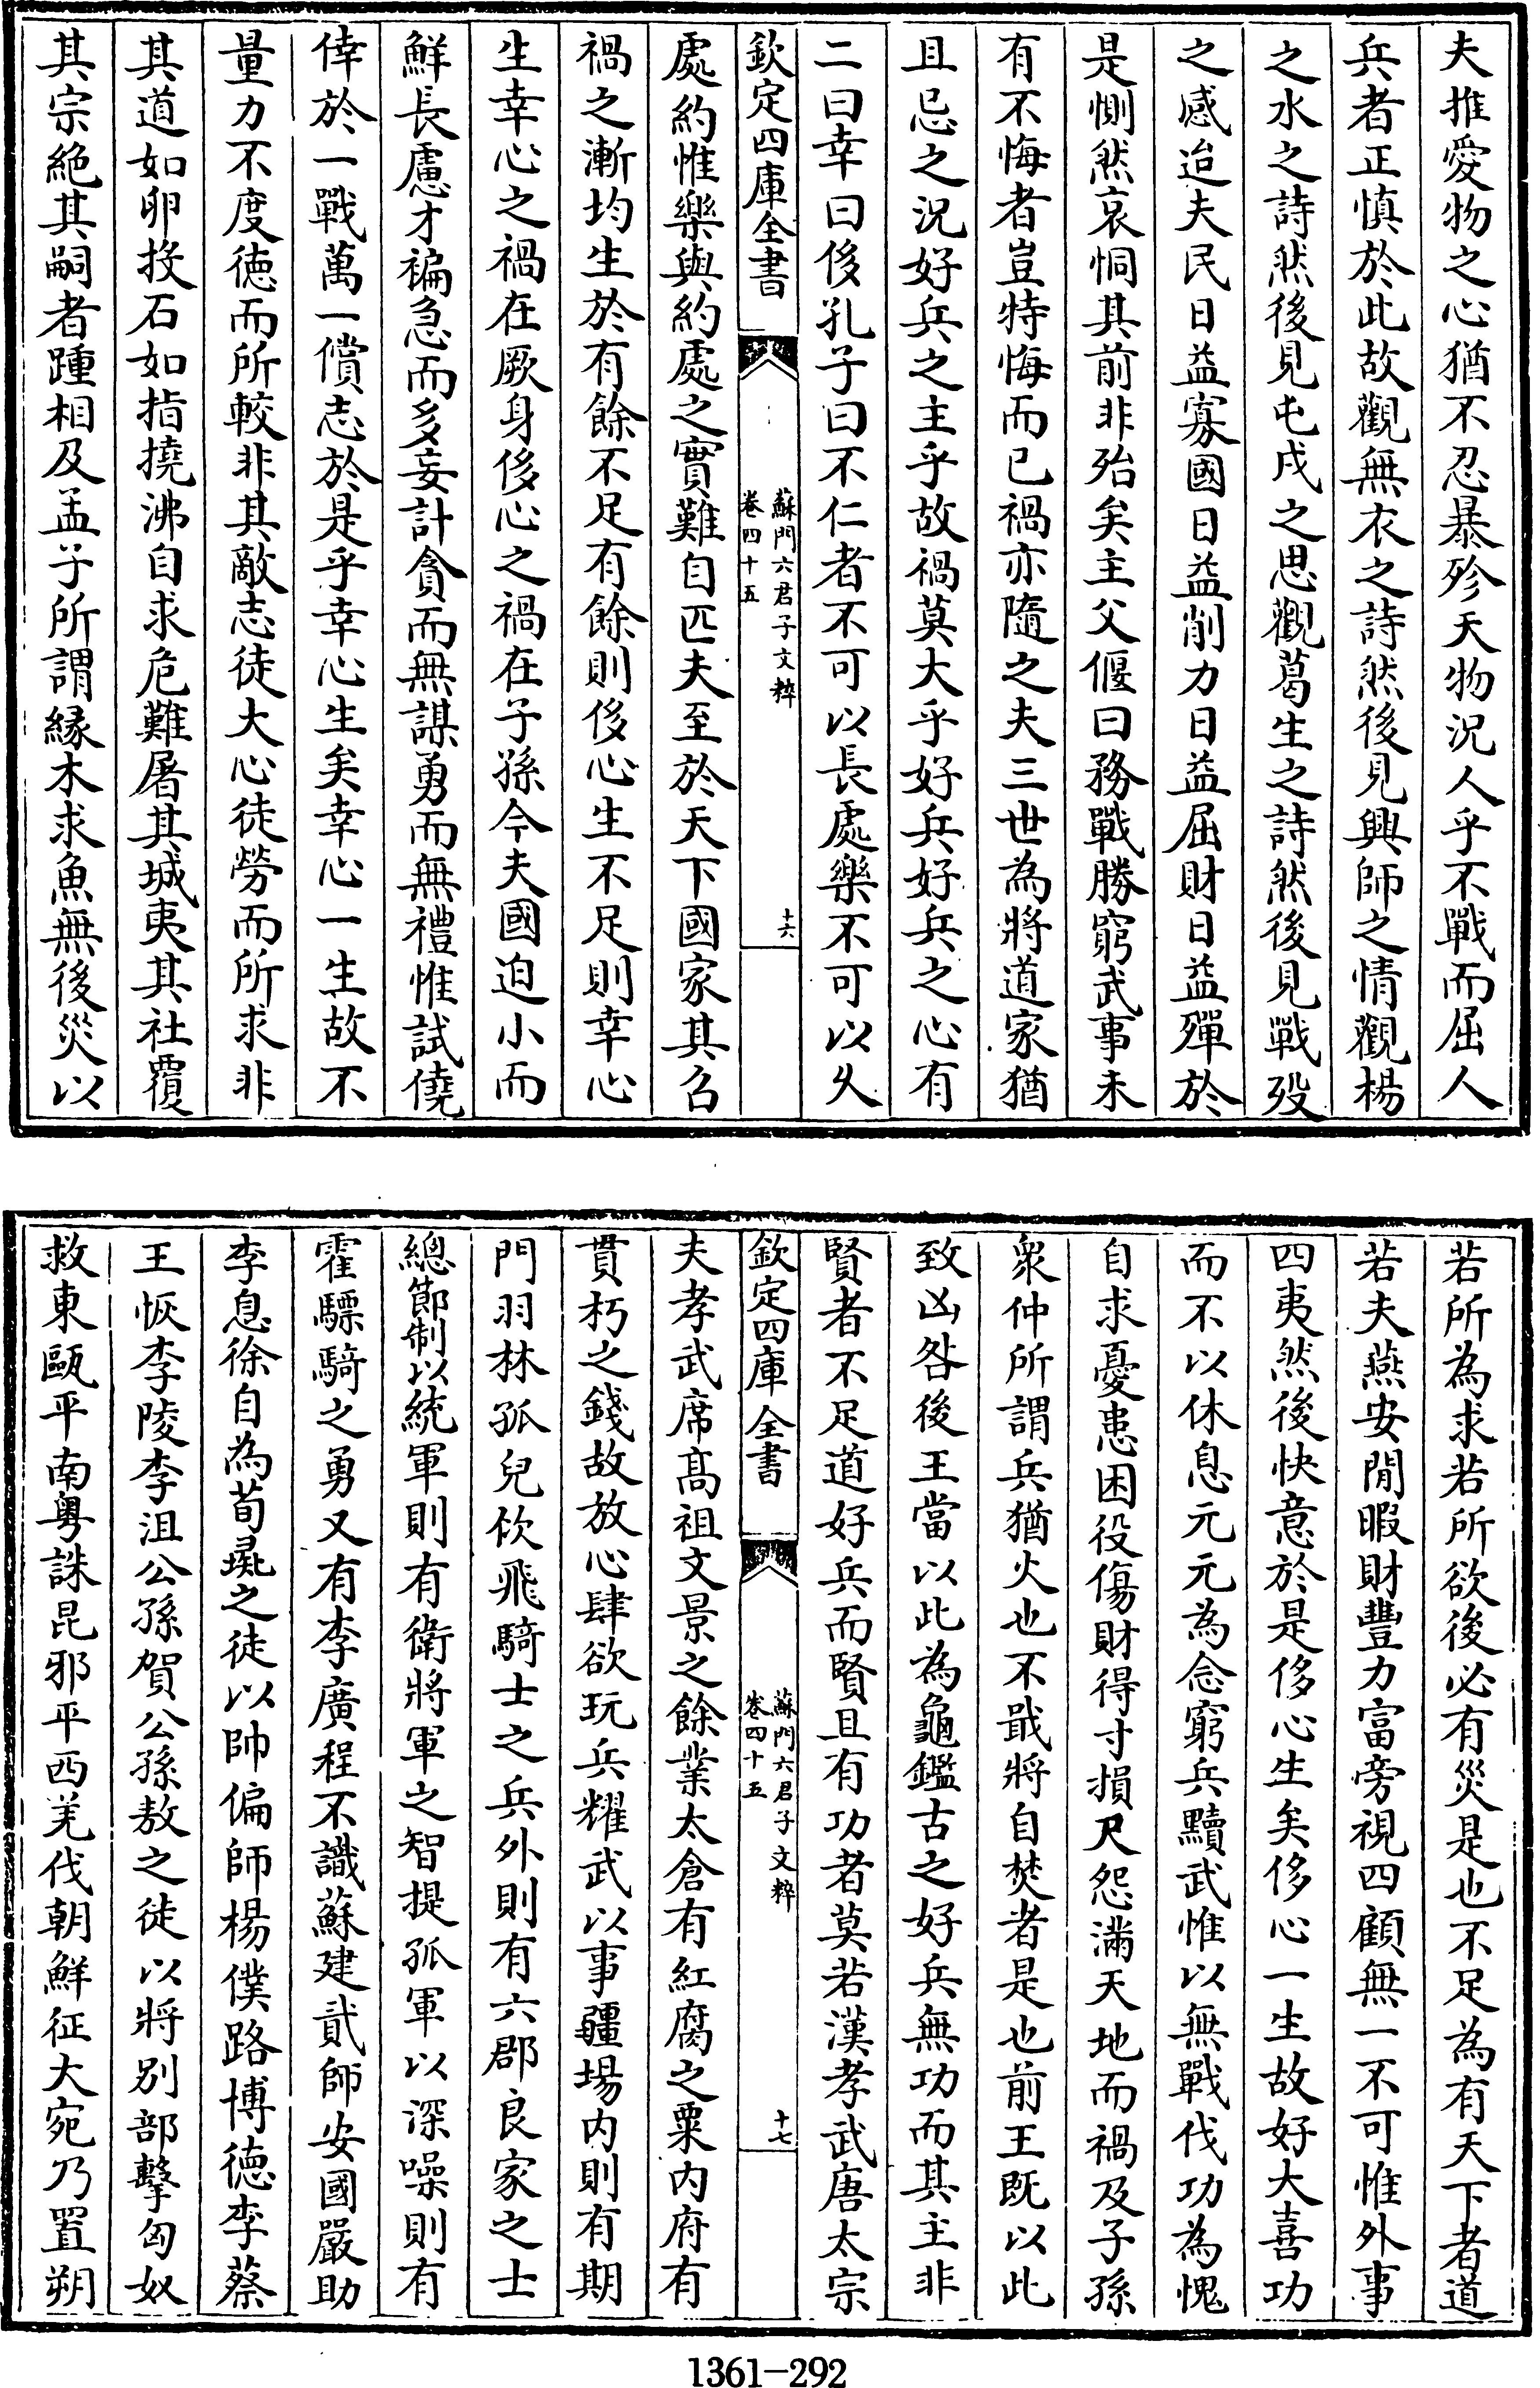 夫推愛物之心猶不忍暴殄天物況人乎不戰而屈人
兵者正慎於此故觀無衣之詩然後見興師之情觀楊
之水之詩然後見屯戍之思觀葛生之詩然後見戰歿
之感迨夫民日益寡國日益削力日益屈財日益殫於
是惻然哀恫其前非殆矣主父偃曰務戰勝窮武事未
有不悔者豈特悔而已禍亦隨之夫三世為將道家猶
且忌之況好兵之主乎故禍莫大乎好兵好兵之心有
二曰幸曰侈孔子曰不仁者不可以長處樂不可以久
欽定四庫全書
蘇門六君子文粹
卷四十五
十六
處約惟樂與約處之實難自匹夫至於天下國家其召
禍之漸均生於有餘不足有餘則侈心生不足則幸心
生幸心之禍在厥身侈心之禍在子孫今夫國迫小而
鮮長慮才褊急而多妄計貪而無謀勇而無禮惟試僥
倖於一戰萬一償志於是乎幸心生矣幸心一生故不
量力不度徳而所較非其敵志徒大心徒勞而所求非
其道如卵投石如指撓沸自求危難屠其城夷其社覆
其宗絶其嗣者踵相及孟子所謂緣木求魚無後災以
若所為求若所欲後必有災是也不足為有天下者道
若夫燕安閒暇財豐力富旁視四顧無一不可惟外事
四夷然後快意於是侈心生矣侈心一生故好大喜功
而不以休息元元為念窮兵黷武惟以無戰伐功為愧
自求憂患困役傷財得寸損尺怨滿天地而禍及子孫
衆仲所謂兵猶火也不戢將自焚者是也前王既以此
致凶咎後王當以此為龜鑑古之好兵無功而其主非
賢者不足道好兵而賢且有功者莫若漢孝武唐太宗
欽定四庫全書
蘇門六君子文粹
卷四十五
十七
夫孝武席髙祖文景之餘業太倉有紅腐之粟内府有
貫朽之錢故放心肆欲玩兵耀武以事疆場内則有期
門羽林孤兒佽飛騎士之兵外則有六郡良家之士
總節制以統軍則有衛將軍之智提孤軍以深噪則有
霍驃騎之勇又有李廣程不識蘇建貳師安國嚴助
李息徐自為荀彘之徒以帥偏師楊僕路博徳李蔡
王恢李陵李沮公孫賀公孫敖之徒以將别部擊匈奴
救東甌平南粤誅昆邪平西羌伐朝鮮征大宛乃置朔
1361-292